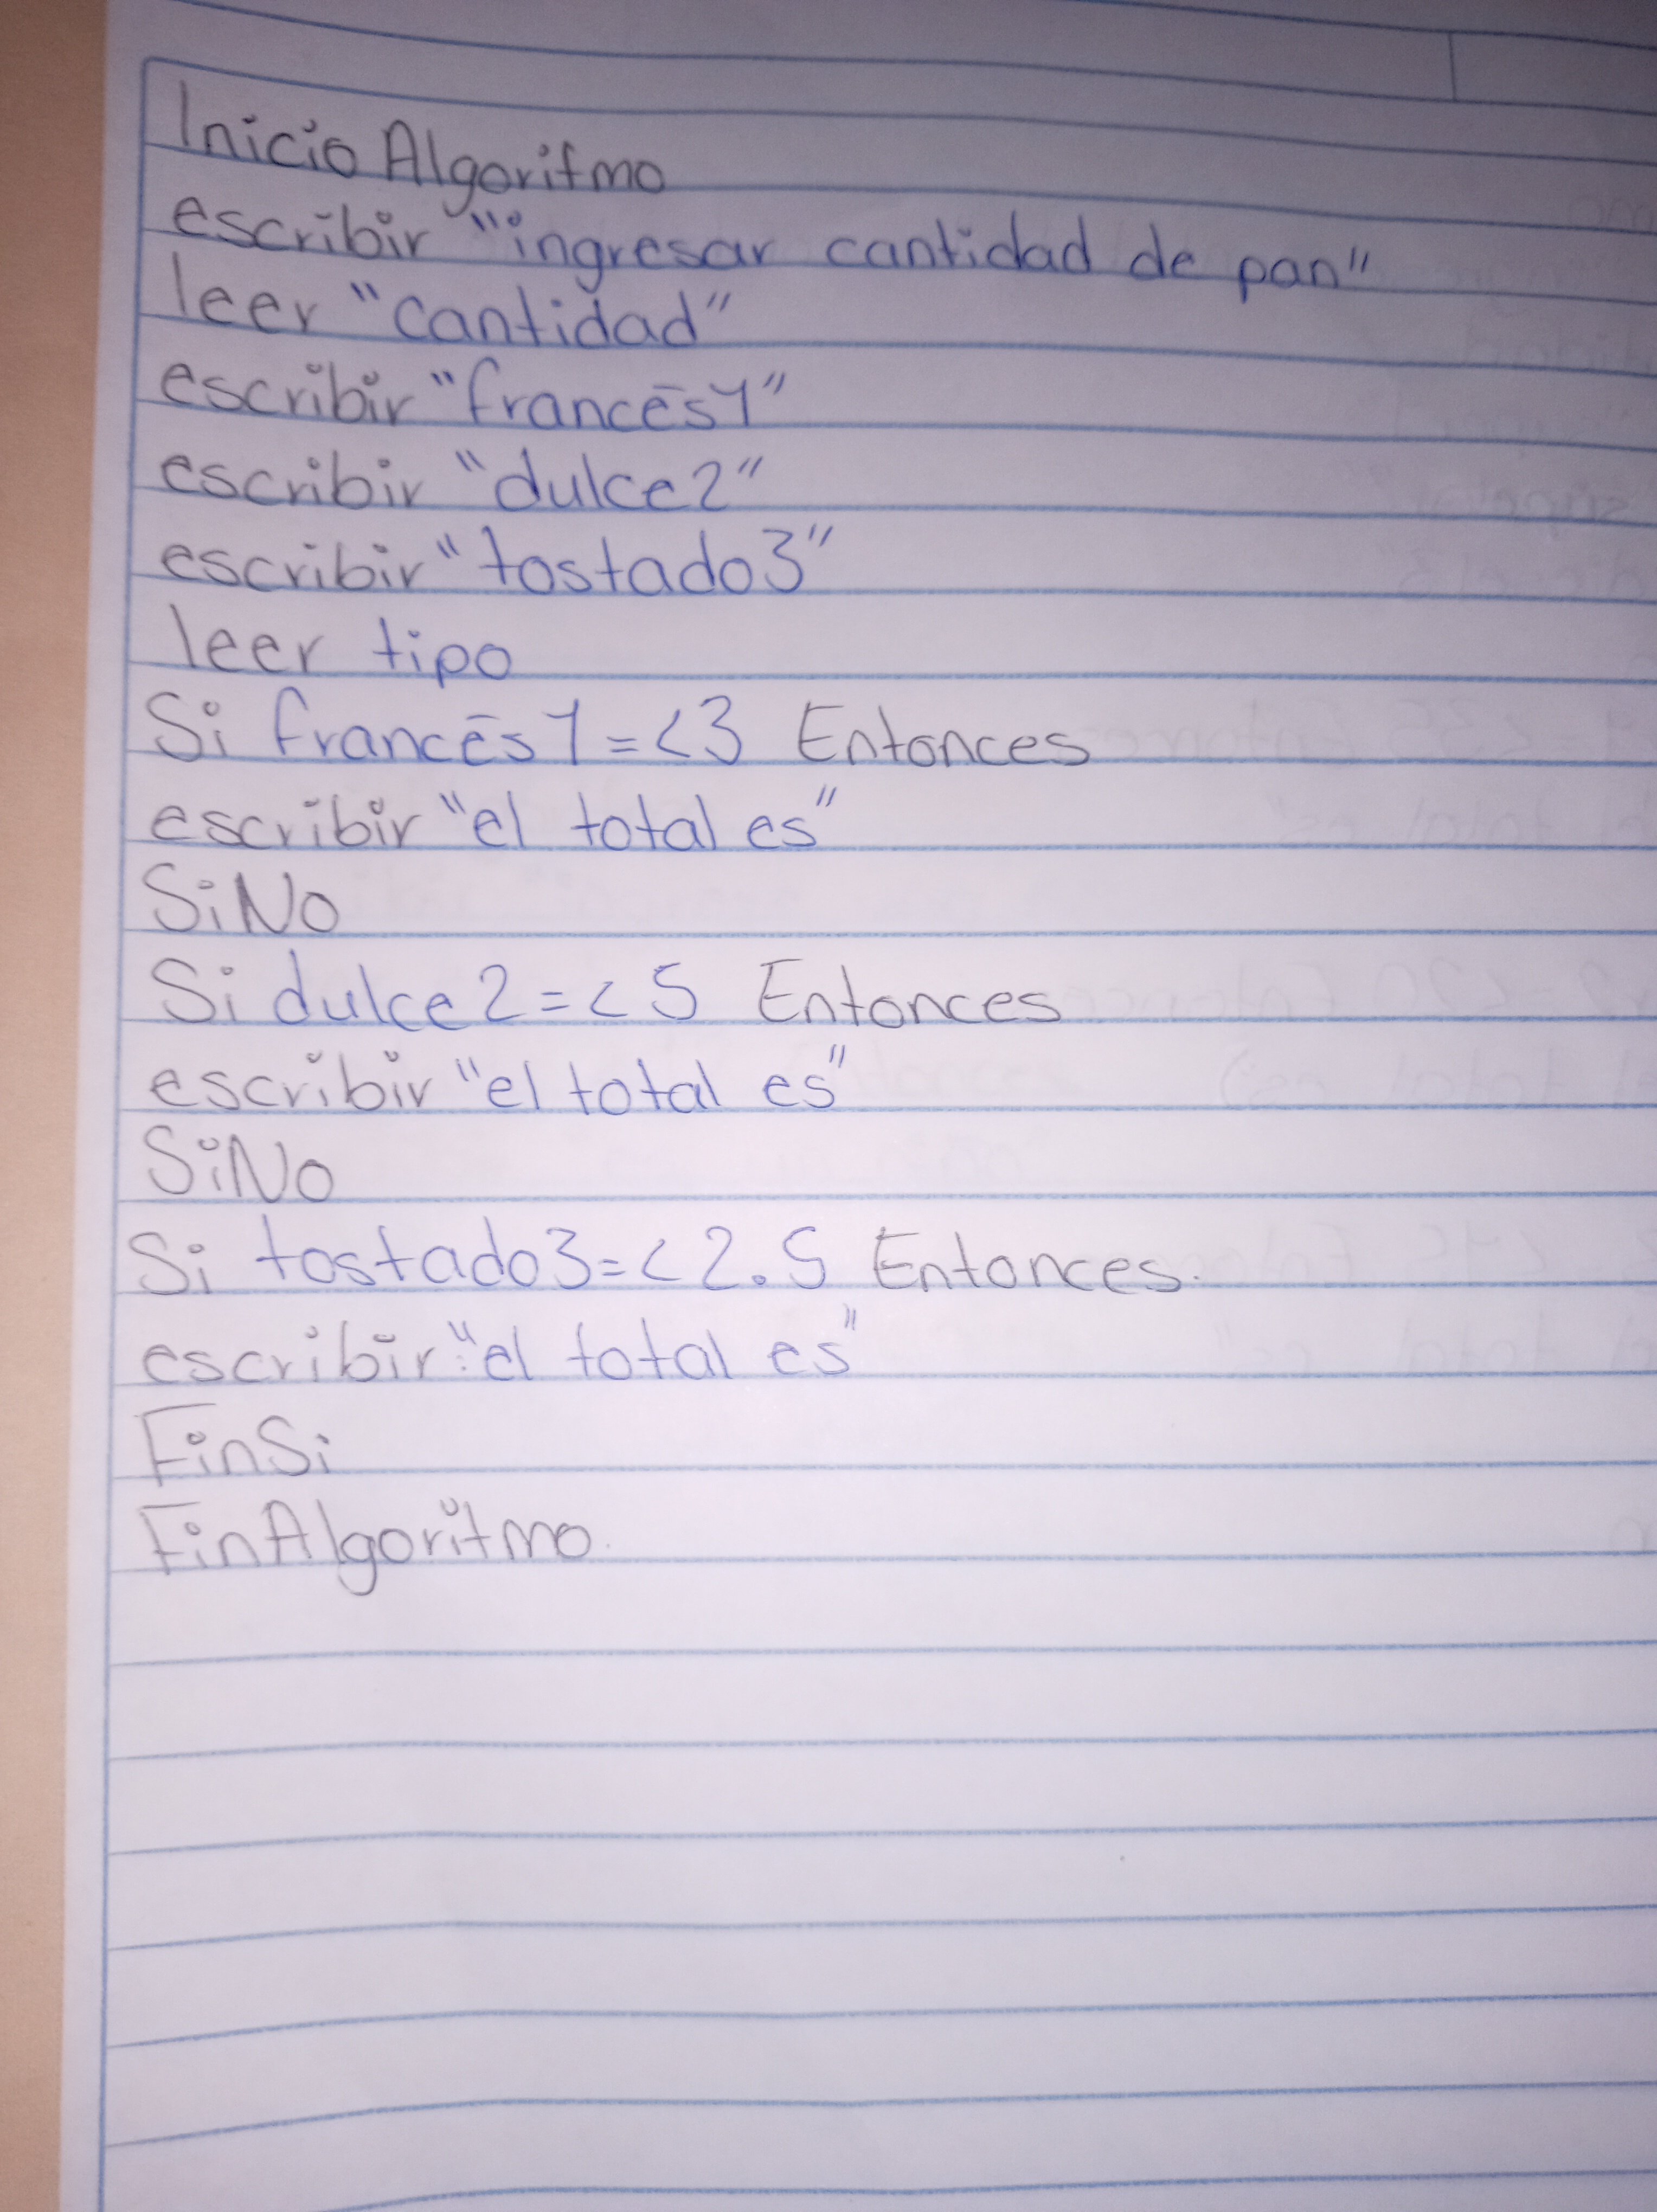 Inicio Algoritmo
escribir "ingresar cantidad de pan"
leer "cantidad"
escribir "francés1"
escribir "dulce2"
escribir "tostado3"
leer tipo
Si francés1=<3 Entonces
escribir "el total es"
SiNo
Si dulce2=<5 Entonces
escribir "el total es"
SiNo
Si tostado3=<2.5 Entonces.
escribir "el total es"
FinSi
FinAlgoritmo.